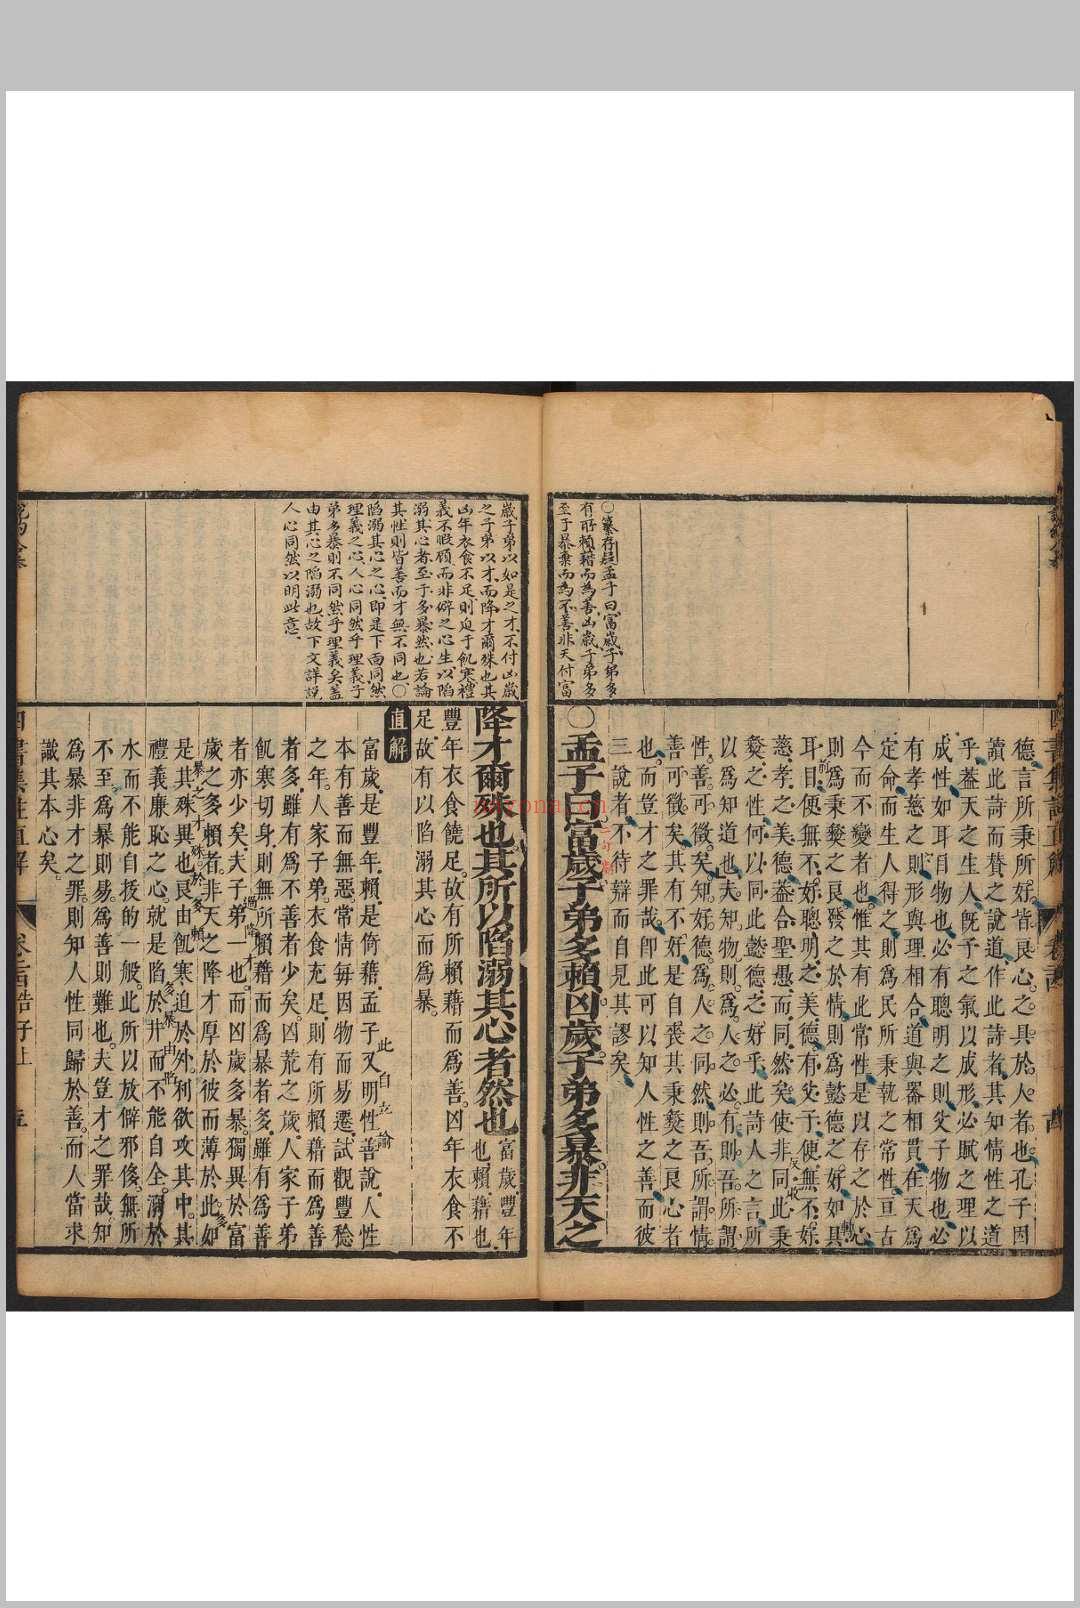 德言所秉所好皆良心之具於人者也孔子因
讀此詩而贊之說道作此詩者其知情性之道
乎蓋天之生人既予之氣以成形必賦之理以
成性如耳目物也必有聰明之則父子物也必
有孝慈之則形與理相合道與器相貫在天爲
定命而生人得之則爲民所秉執之常性亘古
今而不變者也惟其有此常性是以存之於心
則爲秉彜之良發之於情則爲懿德之好如具
耳目便無不好聰明之美德有父子便無不好
慈孝之美德蓋合聖愚而同然矣使非同此秉
彜之性何以同此懿德之好乎此詩人之言所
以爲知道也夫知物則爲人之必有則吾所謂
性善可徵矣知好德爲人之同然則吾所謂情
善可徵矣其有不好是自喪其秉彜之良心者
也而豈才之罪哉卽此可以知人性之善而彼
三說者不待辯而自見其謬矣
○孟子曰富歲子弟多賴凶歲子弟多暴非天之
○纂存疑孟子曰富歲子弟多
有所賴藉而爲善凶歲子弟多
至于暴棄而爲不善非天付富
歲子弟以如是之才不付凶歲
之子弟以才而降才爾殊也其
凶年衣食不足則迫于飢寒禮
義不暇顧而非僻之心生以陷
溺其心者至于多暴然也若論
其性則皆善而才無不同也○
陷溺其心之心即是下面同然
理義之心人心同然乎理義子
弟多暴則不同然乎理義矣蓋
由其心之陷溺也故下文詳說
人心同然以明此意
降才爾殊也其所以陷溺其心者然也
富歲豐年
也賴藉也
豐年衣食饒足故有所賴藉而爲善凶年衣食不
足故有以陷溺其心而爲暴
直解
富歲是豐年賴是倚藉孟子又明性善說人性
本有善而無惡常情每因物而易遷試觀豐稔
之年人家子弟衣食充足則有所賴藉而爲善
者多雖有爲不善者少矣凶荒之歲人家子弟
飢寒切身則無所賴藉而爲暴者多雖有爲善
者亦少矣夫子弟一也而凶歲多暴獨異於富
歲之多賴者非天之降才厚於彼而薄於此如
是其殊異也良由飢寒迫於外利欲攻其中其
禮義廉恥之心就是陷於井而不能自全溺於
水而不能自拔的一般此所以放僻邪侈無所
不至爲暴則易爲善則難也夫豈才之罪哉知
爲暴非才之罪則知人性同歸於善而人當求
識其本心矣
nayona.cn